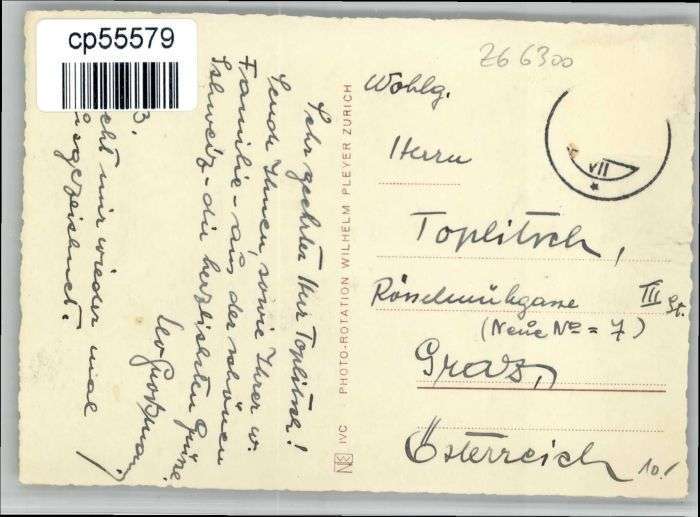 cp55579
Z66300
Sehr geehrter Herr Toplitsch!
Sende Ihnen, sowie Ihrer w.
Familie - aus der schönen
Schweiz - die herzlichsten Grüße.
Leo Großmann
cht mir wieder mal
sgezeichnet.
IVC PHOTO-ROTATION WILHELM PLEYER ZURICH
Wohlg.
Herrn
Toplitsch,
Rösselmühlgasse III St.
(Neue No = 7)
Graz,
Österreich
VII
10.-